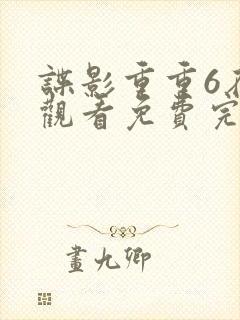 諜影重重6在
觀看免費完
畫九卿